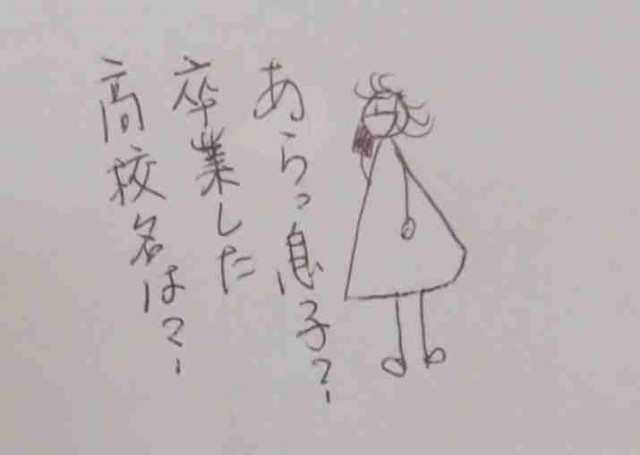 あらっ息子?
卒業した
高校名は?